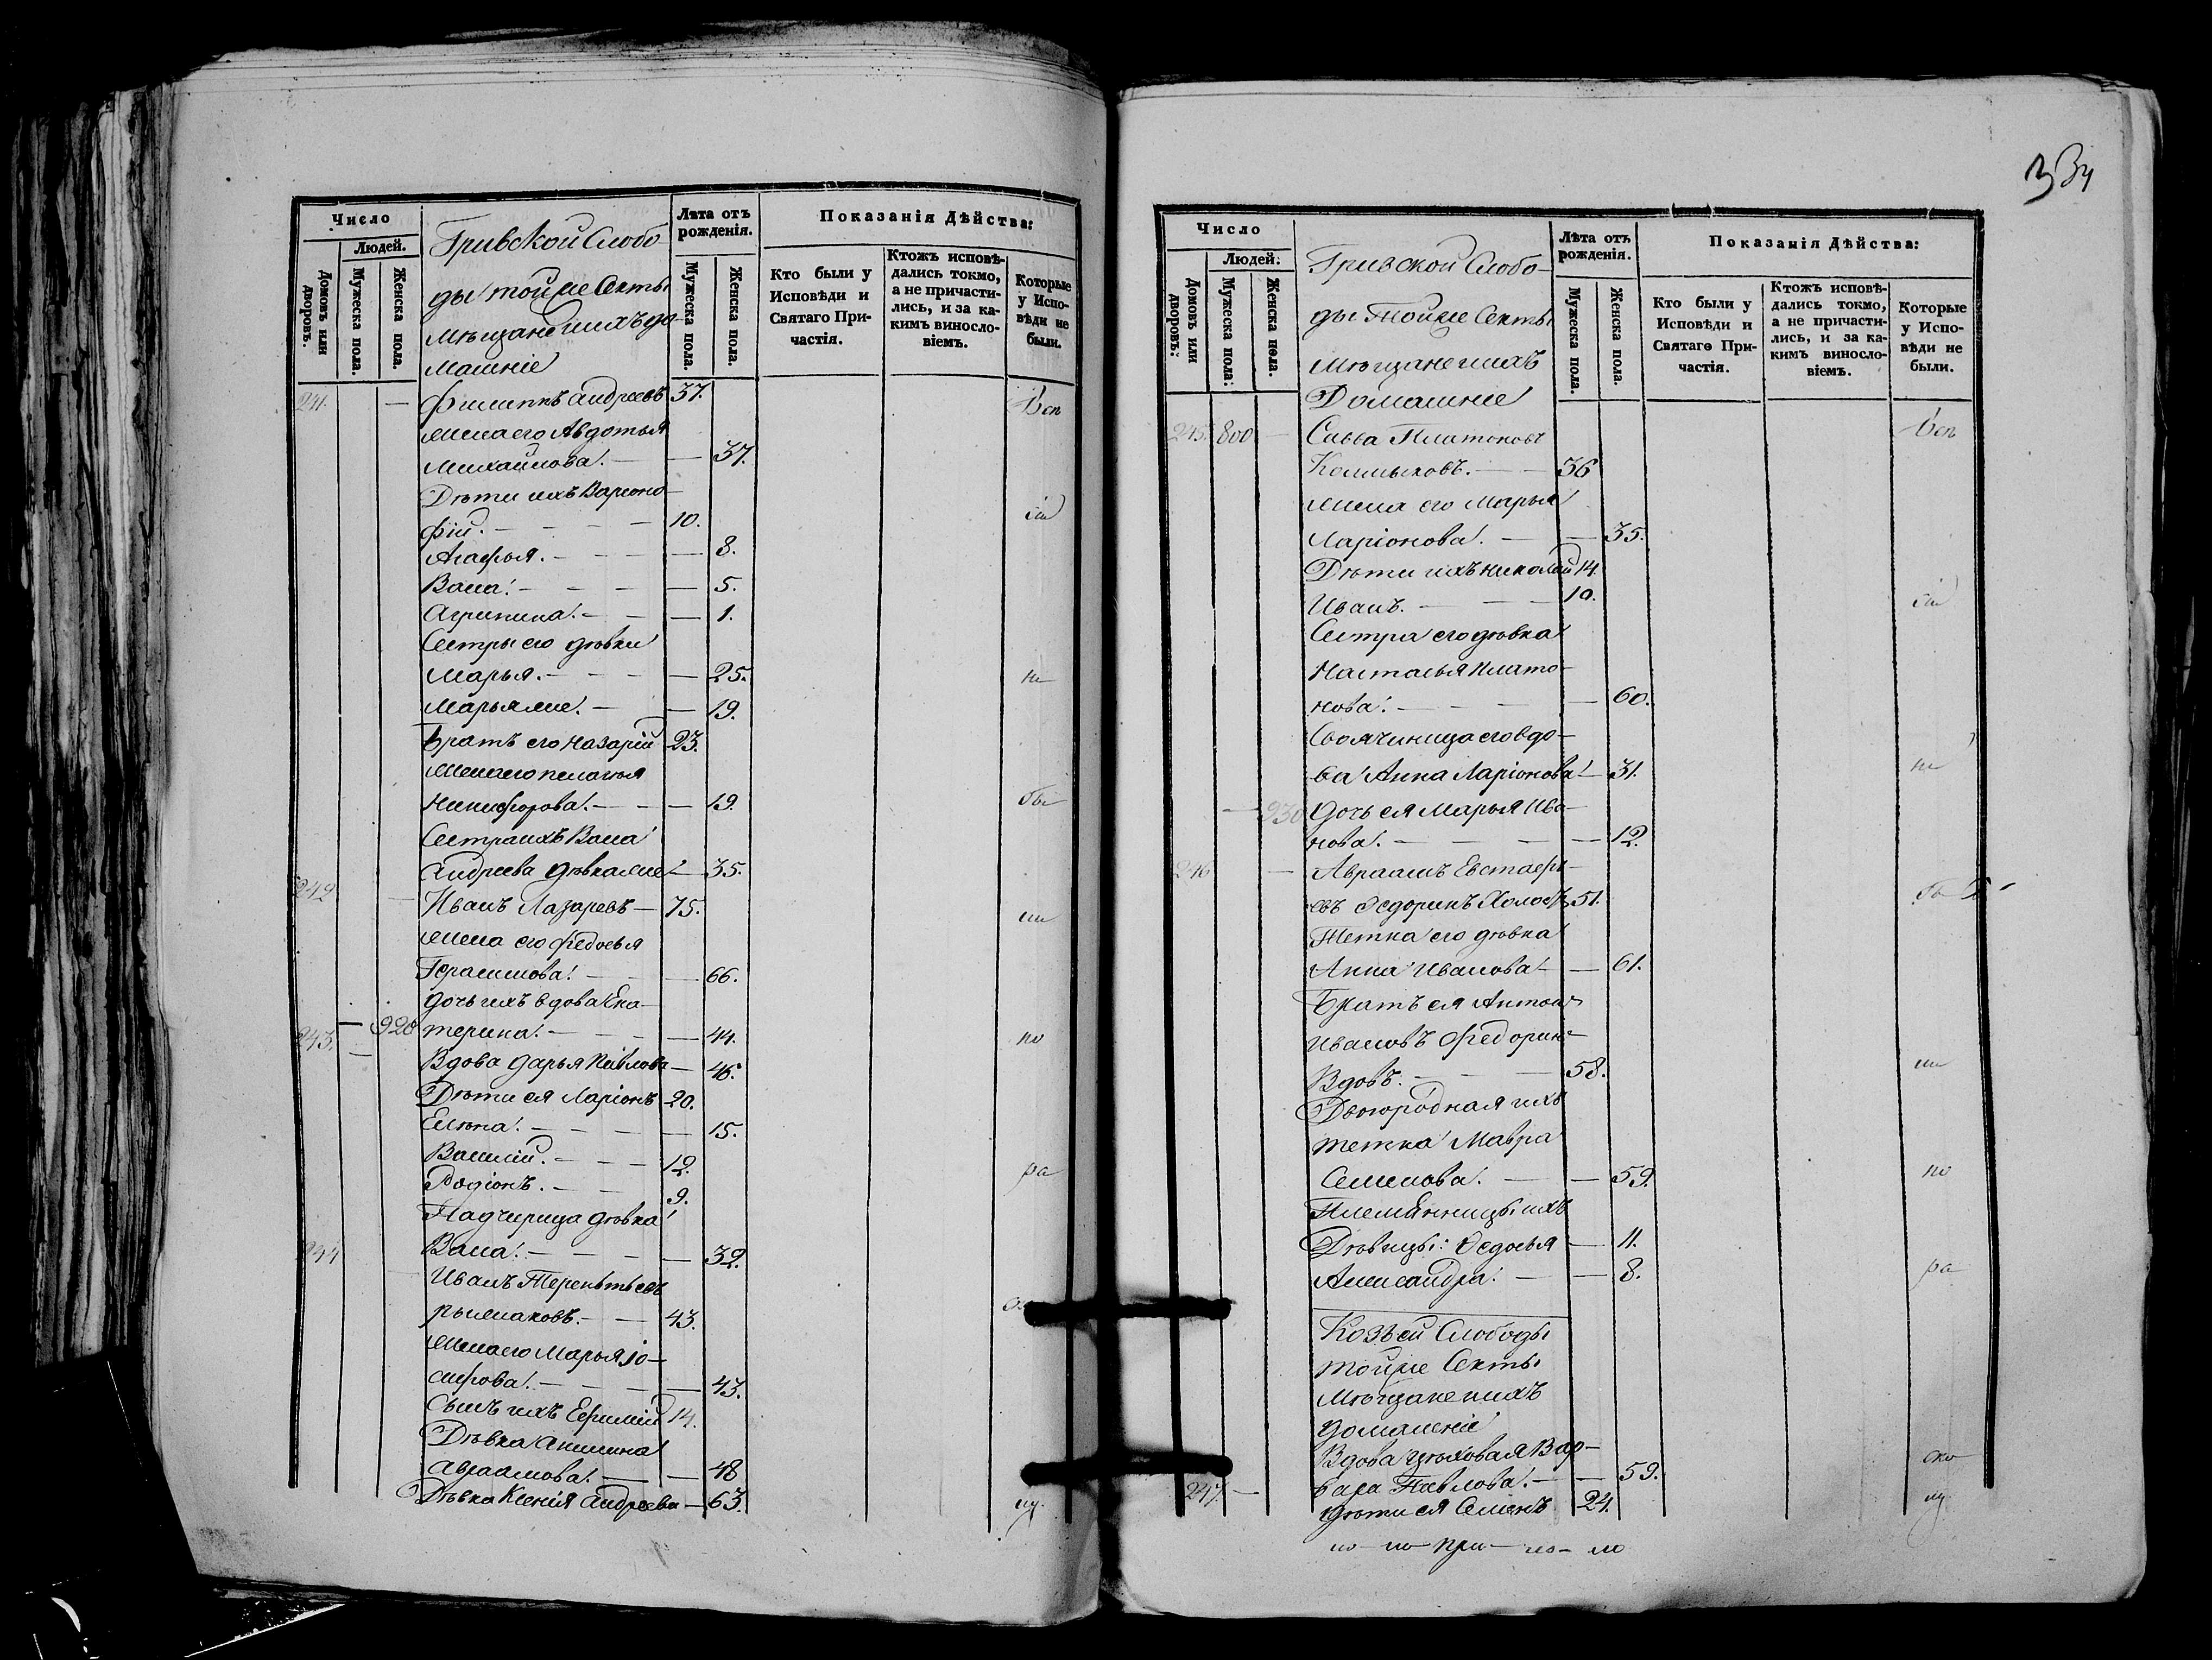 Число
Людей.
Домовъ или дворовъ.
Мужеска пола.
Женска пола.
Гривской Слобо-
ды тойже Секты
мѣщане ихъ до-
машніе
Лѣта отъ рожденія.
Мужеска пола.
Женска пола.
Показанія Дѣйства:
Кто были у Исповѣди и Святаго При-частія.
Ктожъ исповѣ-дались токмо, а не причасти-лись, и за ка-кимъ винословіемъ.
Которые у Испо-вѣди не были.
241. — Филиппъ Андреевъ 37.
жена его Авдотья
Михайлова. — — 37.
Дѣти ихъ Варѳоло-
фій. — — — 10.
Агафья. — — — 8.
Васса. — — — 5.
Агрипина. — — — 1.
Сестры его дѣвки
Марья. — — — 25.
Марья же. — — 19.
Братъ его Назарій 23.
жена его Пелагья
Никифорова. — — 19.
Сестра ихъ Васса
Андреева дѣвка же — 35.
242 — Иванъ Лазаревъ — 75.
жена его Федосья
Герасимова. — — 66.
дочь ихъ вдова Ека-
920 терина. — — — 44.
243. — Вдова Дарья Павлова — 46.
Дѣти ея Ларіонъ 20.
Елена. — — — 15.
Василій. — — — 12.
Родіонъ. — — 9.
Падчерица дѣвка
244 Васса. — — — 32.
Иванъ Терентьевъ
— — 43.
жена его Марья Іо-
сифова. — — — 43.
Сынъ ихъ Ефимій 14.
Дѣвка Акилина
Авраамова. — — 48
Дѣвка Ксенія Андреева — 63.
Всѣ
сіи
не
бы
ли
по
ра
34
Число
Людей.
Домовъ или дворовъ.
Мужеска пола.
Женска пола.
Гривской Слобо-
ды Тойже Секты
мѣщане ихъ
Домашніе
Лѣта отъ рожденія.
Мужеска пола.
Женска пола.
Показанія Дѣйства:
Кто были у Исповѣди и Святаго При-частія.
Ктожъ исповѣ-дались токмо, а не причасти-лись, и за ка-кимъ винословіемъ.
Которые у Испо-вѣди не были.
245. 800 — Савва Платоновъ
Колмыковъ. — — 36
жена его Марья
Ларіонова. — — 35.
Дѣти ихъ Николай 14.
Иванъ. — — — 10.
Сестра его дѣвка
Настасья Плато-
нова. — — — 60.
Своячиница его вдо-
ва Анна Ларіонова — 31.
— 930 дочь ея Марья Ива-
нова. — — — 12.
246 — Авраамъ Евстафь-
евъ Ѳедоринъ Холостъ 51.
Тетка его дѣвка
Анна Иванова — — 61.
Братъ ея Антонъ
Ивановъ Федоринъ
Вдовъ. — — — 58.
Двоюродная ихъ
тетка Мавра
Семенова. — — 59.
Племянницы ихъ
Дѣвицы: Ѳедосья — 11.
Александра. — — 8.
Козьей Слободы
тойже Секты
мѣщане ихъ
домашніе
Вдова Вар-
вара Павлова. — — 59.
247. — дѣти ея Семенъ 24.
Всѣ
сіи
не
бы
ли
по
ра
ско